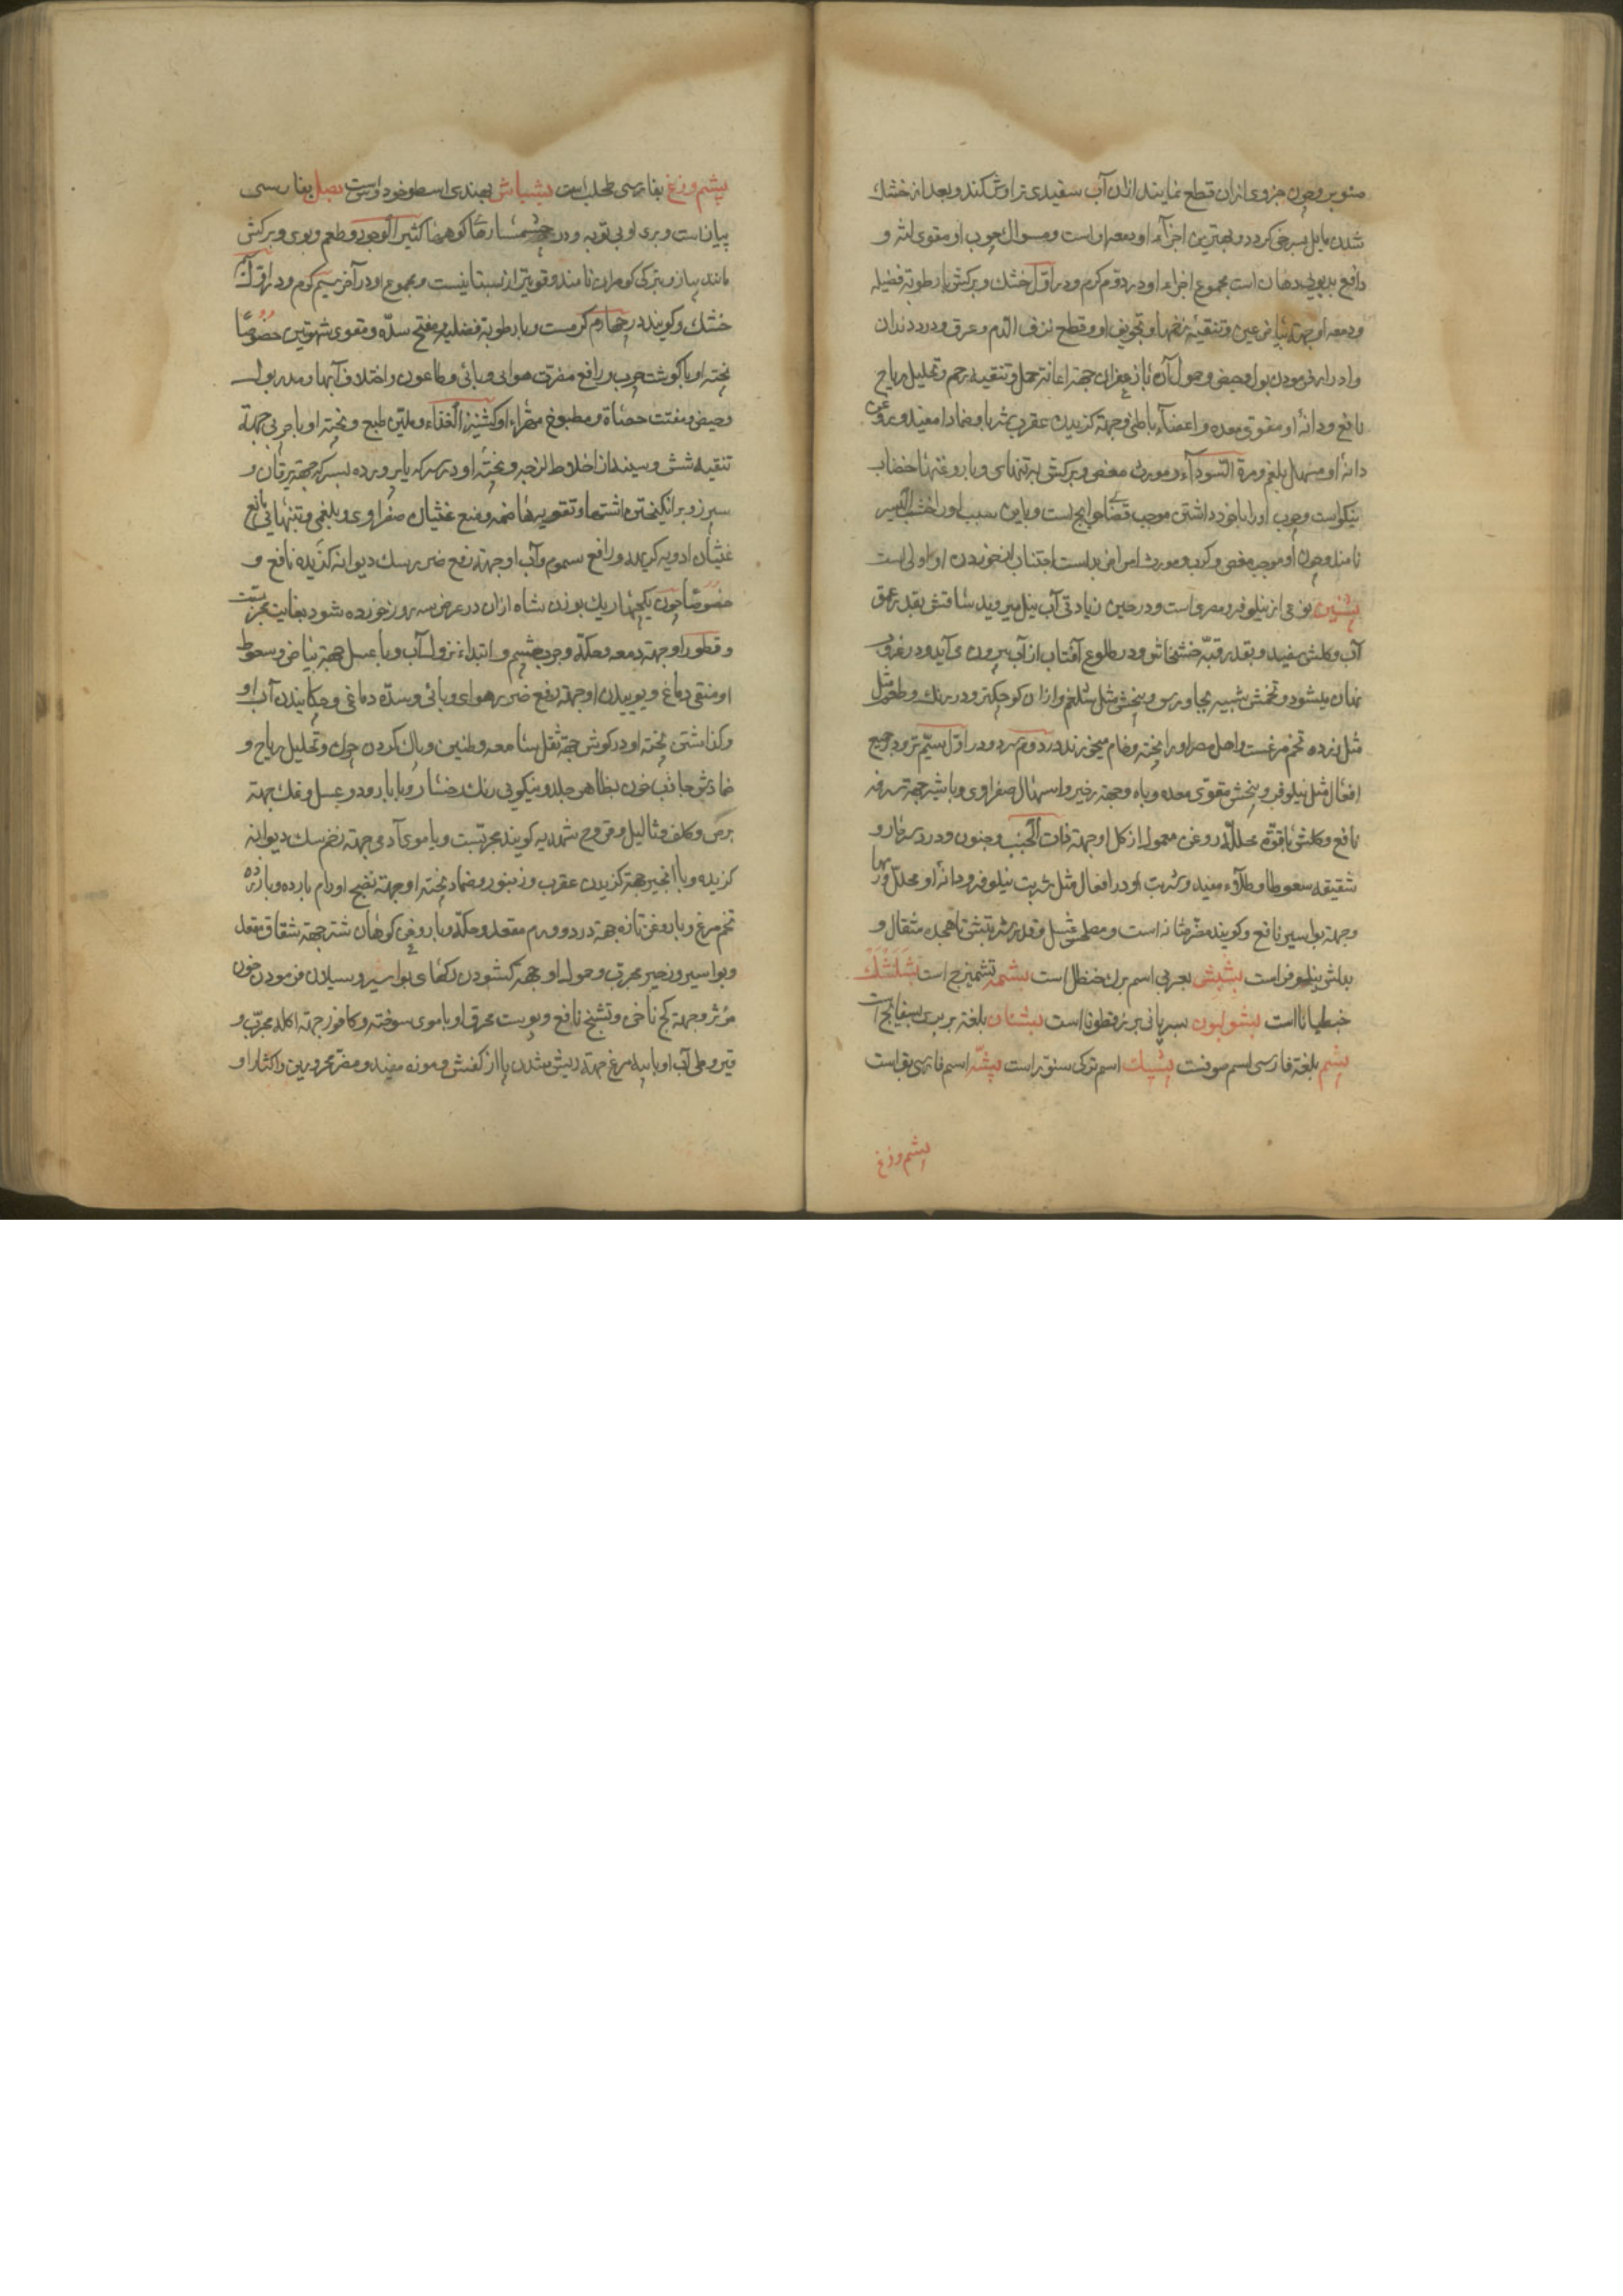 صنوبر و چون جزوی ازان قطع نمایند ازان آب سفیدی تراوش کند و بعد از خشك
شدن مایل بسرخی کردد و بهترین اجزآء او دهن اوست و مسواك چوب او مقوی لثه و
دافع بدبویی دهان است مجموع اجزاء او در دوم کرم و در اول خشك و برکش با رطوبة فضلیه
و دمعه او جهة بیاض عین و تنقیه زخمها و تجویف او و قطع نزف الدم و عرق و درد دندان
و ادرار نمودن بول و حیض و حمول آن با زعفران جهة اعانة حمل و تنقیه رحم و تحلیل ریاح
نافع و دانهٔ او مقوی معده و اعضآء باطنی و جهة کزیدن عقرب شربا و ضمادا مفید و روغن
دانهٔ او مسهل بلغم و مرة السودآء و مورث مغص و برکش به تنهای و با روغنها خضاب
نیکو است و چوب او را با خود داشتن موجب قضای حوایج است و باین سبب او را خشب الیسر
نامند و چون او موجب مغص و کرب و مورث امراض بد است اجتناب از خوردن او اولی است
بشنین نوعی از نیلوفر مصری است و در حین زیادتی آب نیل میروید ساقش بقدر عمق
آب و کلش سفید و بقدر قبه خشخاش و در طلوع آفتاب از آب بیرون می آید و در غروب
نهان میشود و تخمش شبیه بجاورس و بیخش مثل شلغم و ازان کوچکتر و در رنك و طعم مثل
مثل زرده تخم مرغست و اهل مصر او را پخته و خام میخورند در دوم سرد و در اول سیم تر و در جمیع
افعال مثل نیلوفر و بیخش مقوی معده و باه و جهة زحیر و اسهال صفراوی و با شیر جهة سرفه
نافع و کلش با قوة محلله و روغن معمول از کل او جهة ذات الجنب و جنون و درد سر حار و
شقیقه سعوطا و طلآء مفید و شربت او در افعال مثل شربت نیلوفر و دانهٔ او محلل ورمها
و جهة بواسیر نافع و کویند مضر مثانه است و مصلحش عسل و قدر شربتش تا هجده مثقال و
بدلش نیلوفر است بشبش بعربی اسم برك حنظل است بشمه تشمیزج است بشلشك
خبطیانا است بشولیون بسریانی بزرقطونا است بشتان بلغة بربری بسفایج است
پشم بلغة فارسی اسم صوفست پشیك اسم ترکی سنور است پشه اسم فارسی بق است
پشم وزغ
پشم وزغ بفارسی طحلب است بشبیاش بهندی اسطوخودوس است بصل بفارسی
پیاز است و بری او بی توبه و در کوهها کثیر الوجود و طعم و بوی و برکش
مانند پیاز و بترکی کومران نامند و قویتر از بستانیست و مجموع او در آخر سیم کرم و در اول آن
خشك و کویند در چهارم کرمست و با رطوبة فضلیه و مفتح سده و مقوی شهوتین خصوصا
پخته او با کوشت چرب و رافع مضرت هوای وبائی و طاعون و اختلاف آبها و مدر بول
و حیض و مفتت حصاة و مطبوخ مهراء او کثیر الغذاء و ملین طبع و پخته او با چربی جهة
تنقیه شش و سینه از اخلاط لزجه و پخته او در سرکه یا پرورده بسرکه جهة یرقان و
سپرز و برانکیختن اشتها و تقویه هاضمه و منع غثیان صفراوی و بلغمی و تنهائی مانع
غثیان ادویه کریهه و رافع سموم و آب او جهة دفع ضرر سك دیوانه کزیده نافع و
خصوصا چون یکچهاریك بوزن شاه ازان در عرض سه روز خورده شود بغایت مجربست
و قطور او جهة دمعه و حکه و جرب چشم و ابتداء نزول آب و با عسل جهة بیاض و سعوط
او منقی دماغ و بوییدن او جهة دفع ضرر هوای وبائی و سده دماغی و چکانیدن آب او
و کذاشتن پخته او در کوش جهة ثقل سامعه و طنین و پاك کردن چرك و تحلیل ریاح و
ضمادش جاذب خون بظاهر جلد و نیکویی رنك رخسار و با بارود و عسل و نمك جهة
برص و کلف و ثالیل و قروح شهدیه کویند مجربست و با موی آدمی جهة زخم سك دیوانه
کزیده و با انجیر جهة کزیدن عقرب و زنبور و ضماد پخته او جهة نضج اورام بارده و با زرده
تخم مرغ و با روغن تازه جهة درد و ورم مقعد و حکه و با روغن کوهان شتر جهة شقاق مقعد
و بواسیر و زحیر مجرب و حمول او جهة کشودن رکهای بواسیر و سیلان فرمودن خون
مؤثر و جهة کج ناخن و تشنج نافع و پوست محرق او با موی سوخته و کافور جهة اکله مجرب و
قیروطی آب او با پیه مرغ جهة ریش شدن پا از کفش و موزه مفید و مضر محرورین و اکثار او